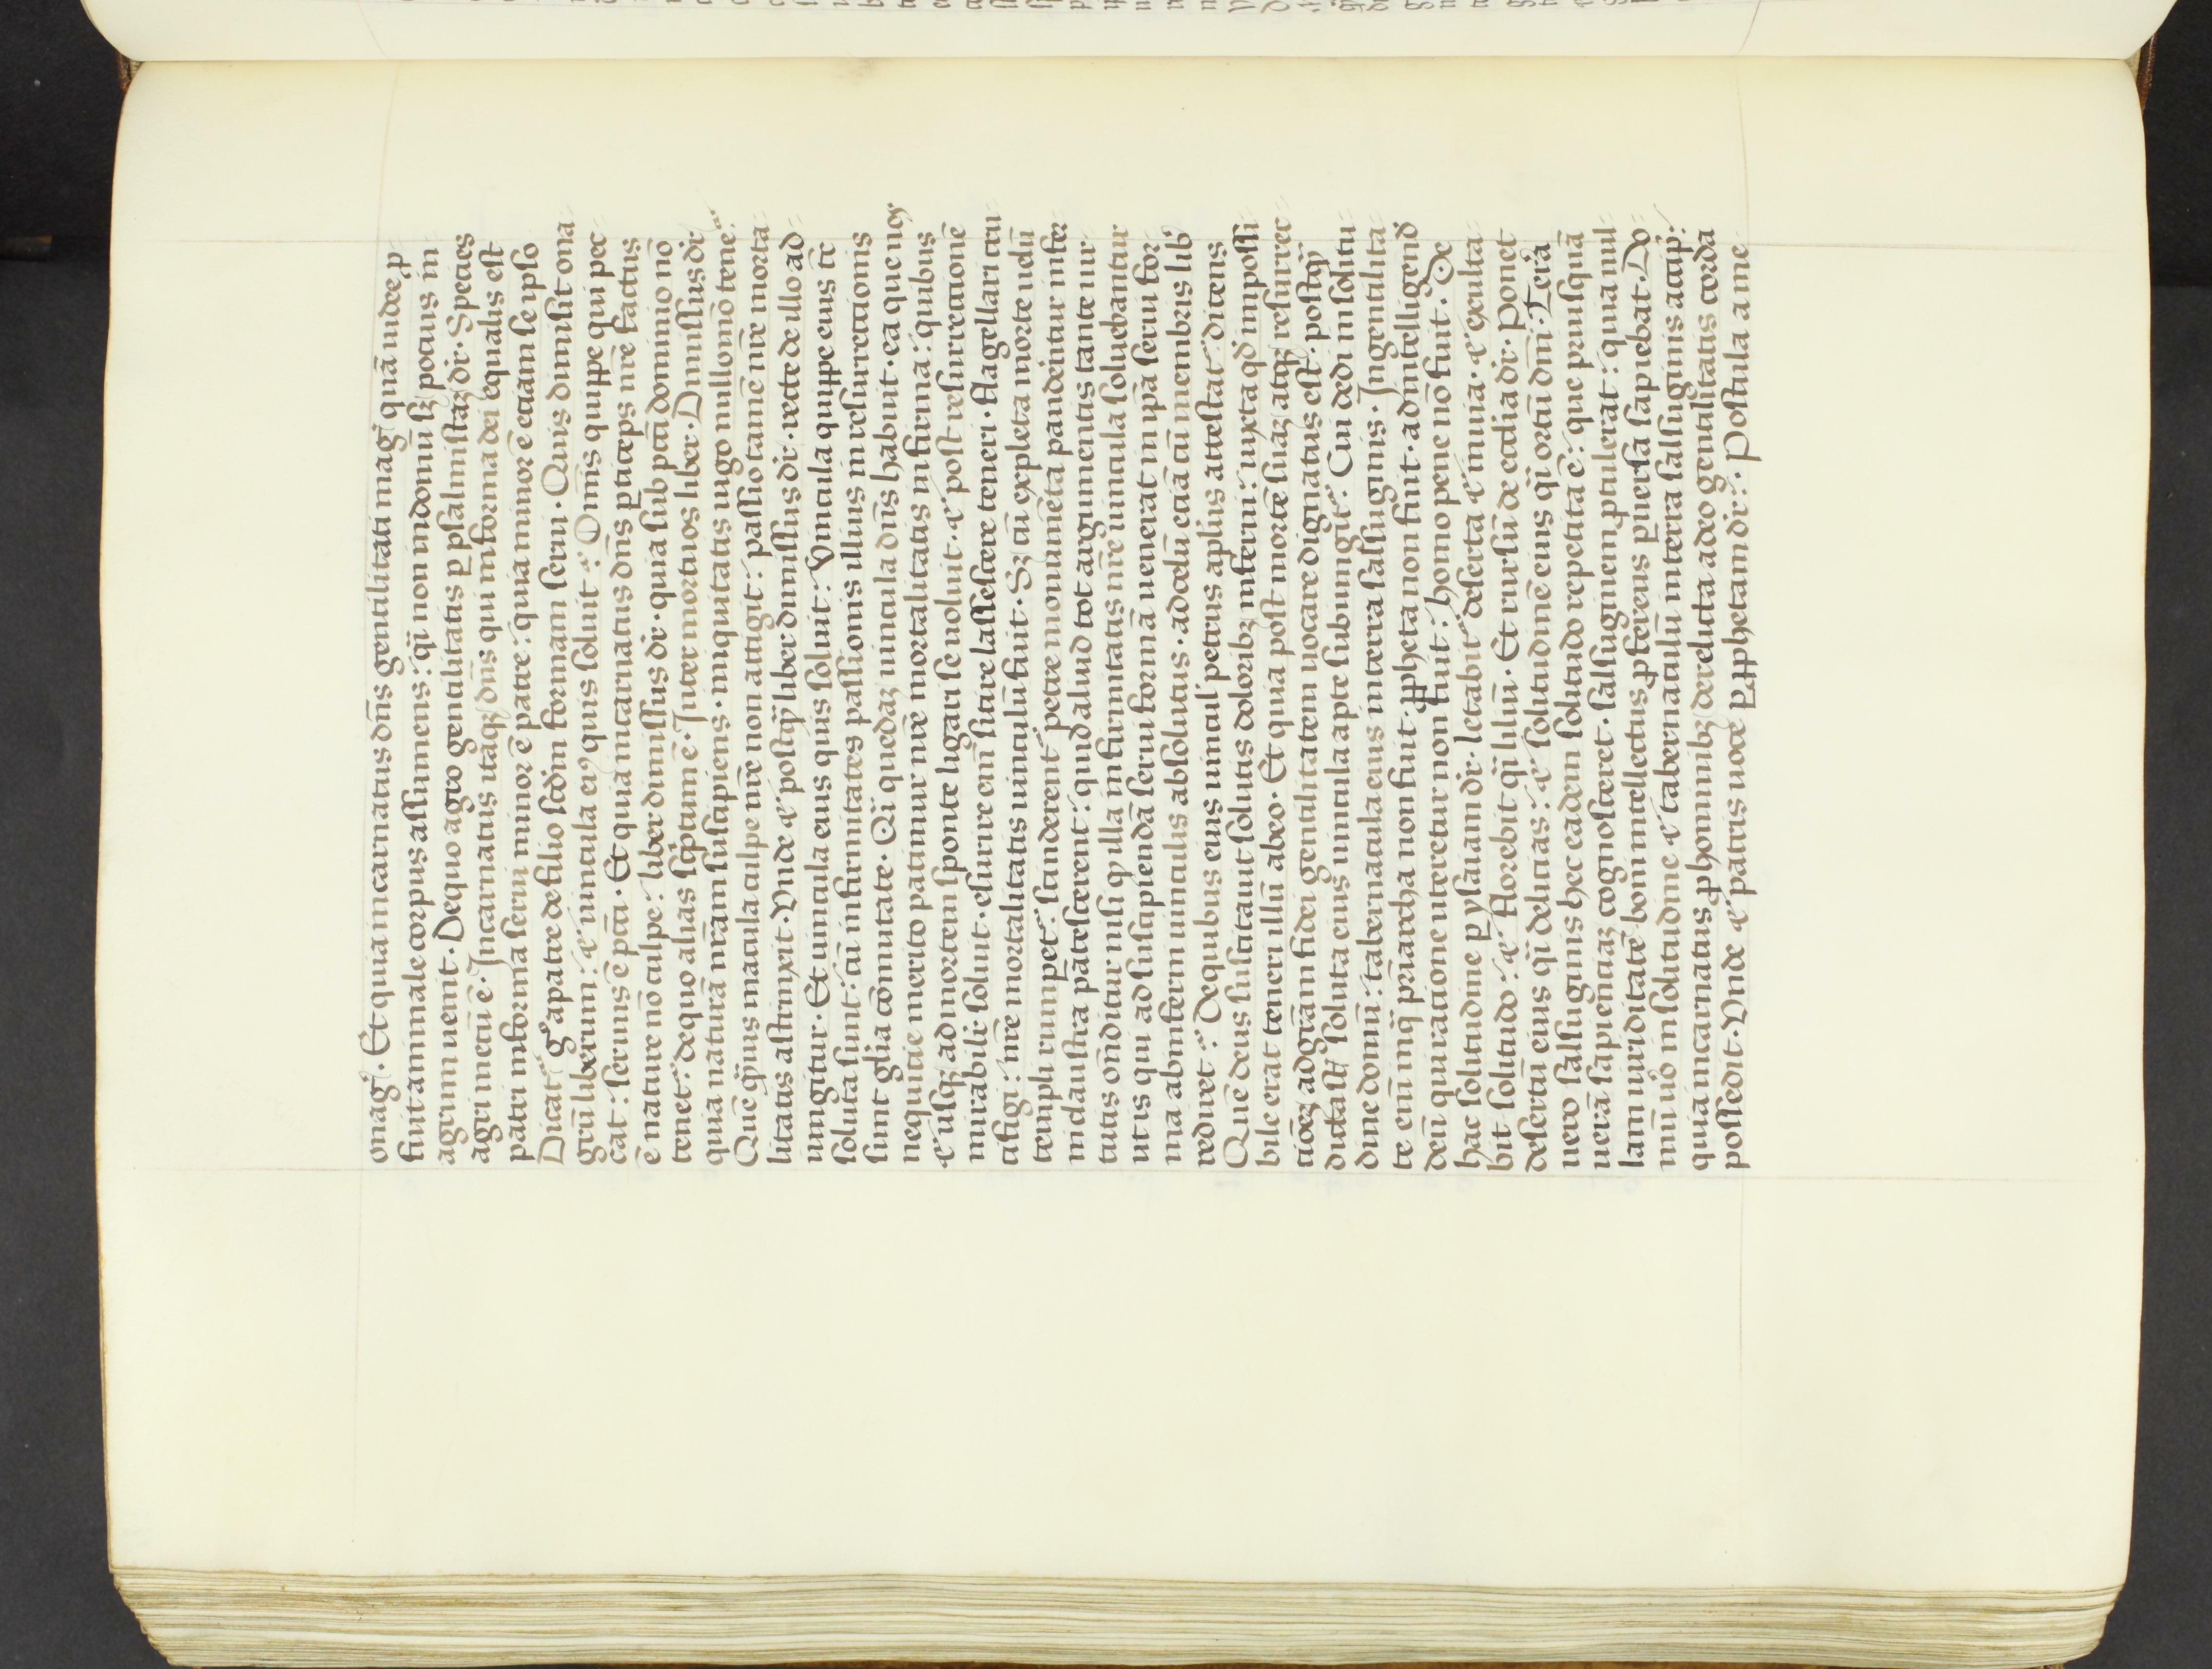 onagͥ. Et quia incarnatus dn̄s gentilitati magͥ quā iudee ꝓ
fuit animale corpus assumens: qͥ non indomū sʒ potius in
agrum uenit. De quo agro gentilitatis ꝑ psalmistaʒ dr̄. Species
agri mecū ē. Incarnatus itaqʒ dn̄s qui in forma dei equalis est
patri in forma serui minor ē patre: quia minor ē etiam se ipso
Dicat gͦ a patre de filio scd̄m formam serui. Quis dimisit ona
grū liberum: ⁊ uincula eiꝰ quis soluit: Omīs quippe qui pec
cat: seruus ē pctī. Et quia incarnatus dn̄s ꝑticeps nr̄e factus
ē nature nō culpe: liber dimissus dr̄. quia sub pctī dominio nō
tenet: de quo alias scͥptum ē. Inter mortuos liber. Dimissus dr̄
quia naturā nr̄am suscipiens. iniquitatis iugo nullomō tene:
Quē qͣuis macula culpe nr̄e non attigit: passio tamē nr̄e morta
litatis astrinxit. Unde ⁊ postqͣ liber dimissus dr̄. recte de illo ad
iungitur. Et uincula eius quis soluit: Vincula quippe eius tc̄
soluta sunt: cū infirmitates passionis illius in resurrectionis
sunt gl̄ia cōmutate. Qͥ quedaʒ uincula dn̄s habuit. ea que nos
nequicie merito patimur nr̄e mortalitatis infirma: quibus
⁊ usqʒ ad mortem sponte ligari se uoluit. ⁊ post resurrectionē
mirabilit̄ soluit. esurire eni᷒ sitire lassescere teneri. flagellari cru
cifigi: nr̄e mortalitatis uinculū fuit. Sʒ cū expleta morte uelū
templi rumpet: scinderent petre monumēta panderūtur infer
ni claustra patescerent: quid aliud tot argumentis tante uir
tutis on̄ditur nisi qͥ illa infirmitatis nr̄e uincula soluebantur
ut is qui ad suscipiendā serui formā uenerat in ip̄a serui for
ma ab inferni uinculis absolutus. ad celū etiā cū membris libͦ
rediret: De quibus eius uincul̓ petrus ap̓lus attestat̓ dicens
Quē deus suscitauit solutis doloribʒ inferni: iuxta qd̓ impossi
bile erat teneri illū ab eo. Et quia post mortē suaʒ atqʒ resurrec
tiōeʒ ad gr̄am fidei gentilitatem uocare dignatus est. postqͣ
dicta sūt soluta eius uincula apte subiungit̓. Cui dedi in solitu
dine domū: tabernacula eius in terra salsuginis. In gentilita
te eni᷒ inqͣ pr̄iarcha non fuit. ꝓpheta non fuit. ad intelligend̓
deū qui ratione uteretur non fuit: homo pene nō fuit. De
hac solitudine ꝑ ysaiam dr̄. letabit̓ deserta ⁊ inuia. ⁊ exulta
bit solitudo: ⁊ florebit qͣ liliū. Et rursū de ecclia dr̄. Ponet
desertū eius qͣ delicias: ⁊ solitudinē eius qͣ ortū dn̄i. Terra
uero salsuginis hec eadem solitudo repetita ē: que priusquā
uerā sapientiaʒ cognosceret. salsuginem ꝓtulerat: quia nul
lam uiriditatē boni intellectus ꝓferens ꝑuersa sapiebat. Do
mū uͦ in solitudine ⁊ tabernaculū in terra salsuginis accip̄:
quia incarnatus ꝓ hominibʒ derelicta a deo gentilitatis corda
possedit. Unde ⁊ patris uoce ꝑ ꝓphetam dr̄: Postula a me